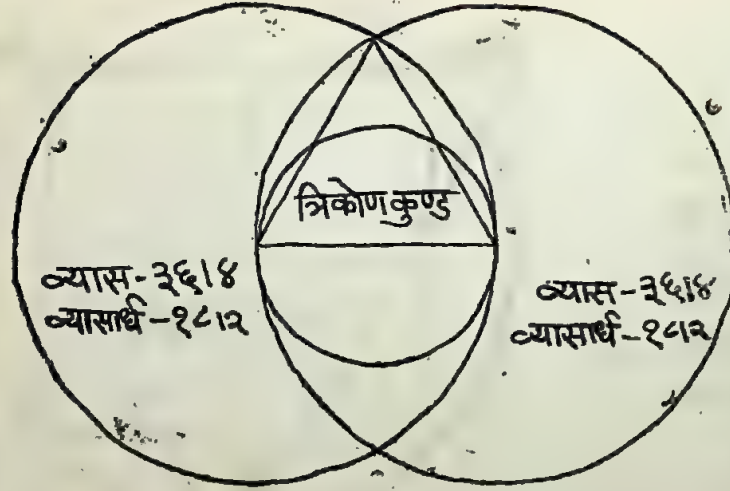 त्रिकोणकुण्ड
व्यास-३६।४
व्यासार्ध-१८।२
व्यास-३६।४
व्यासार्ध-१८।२